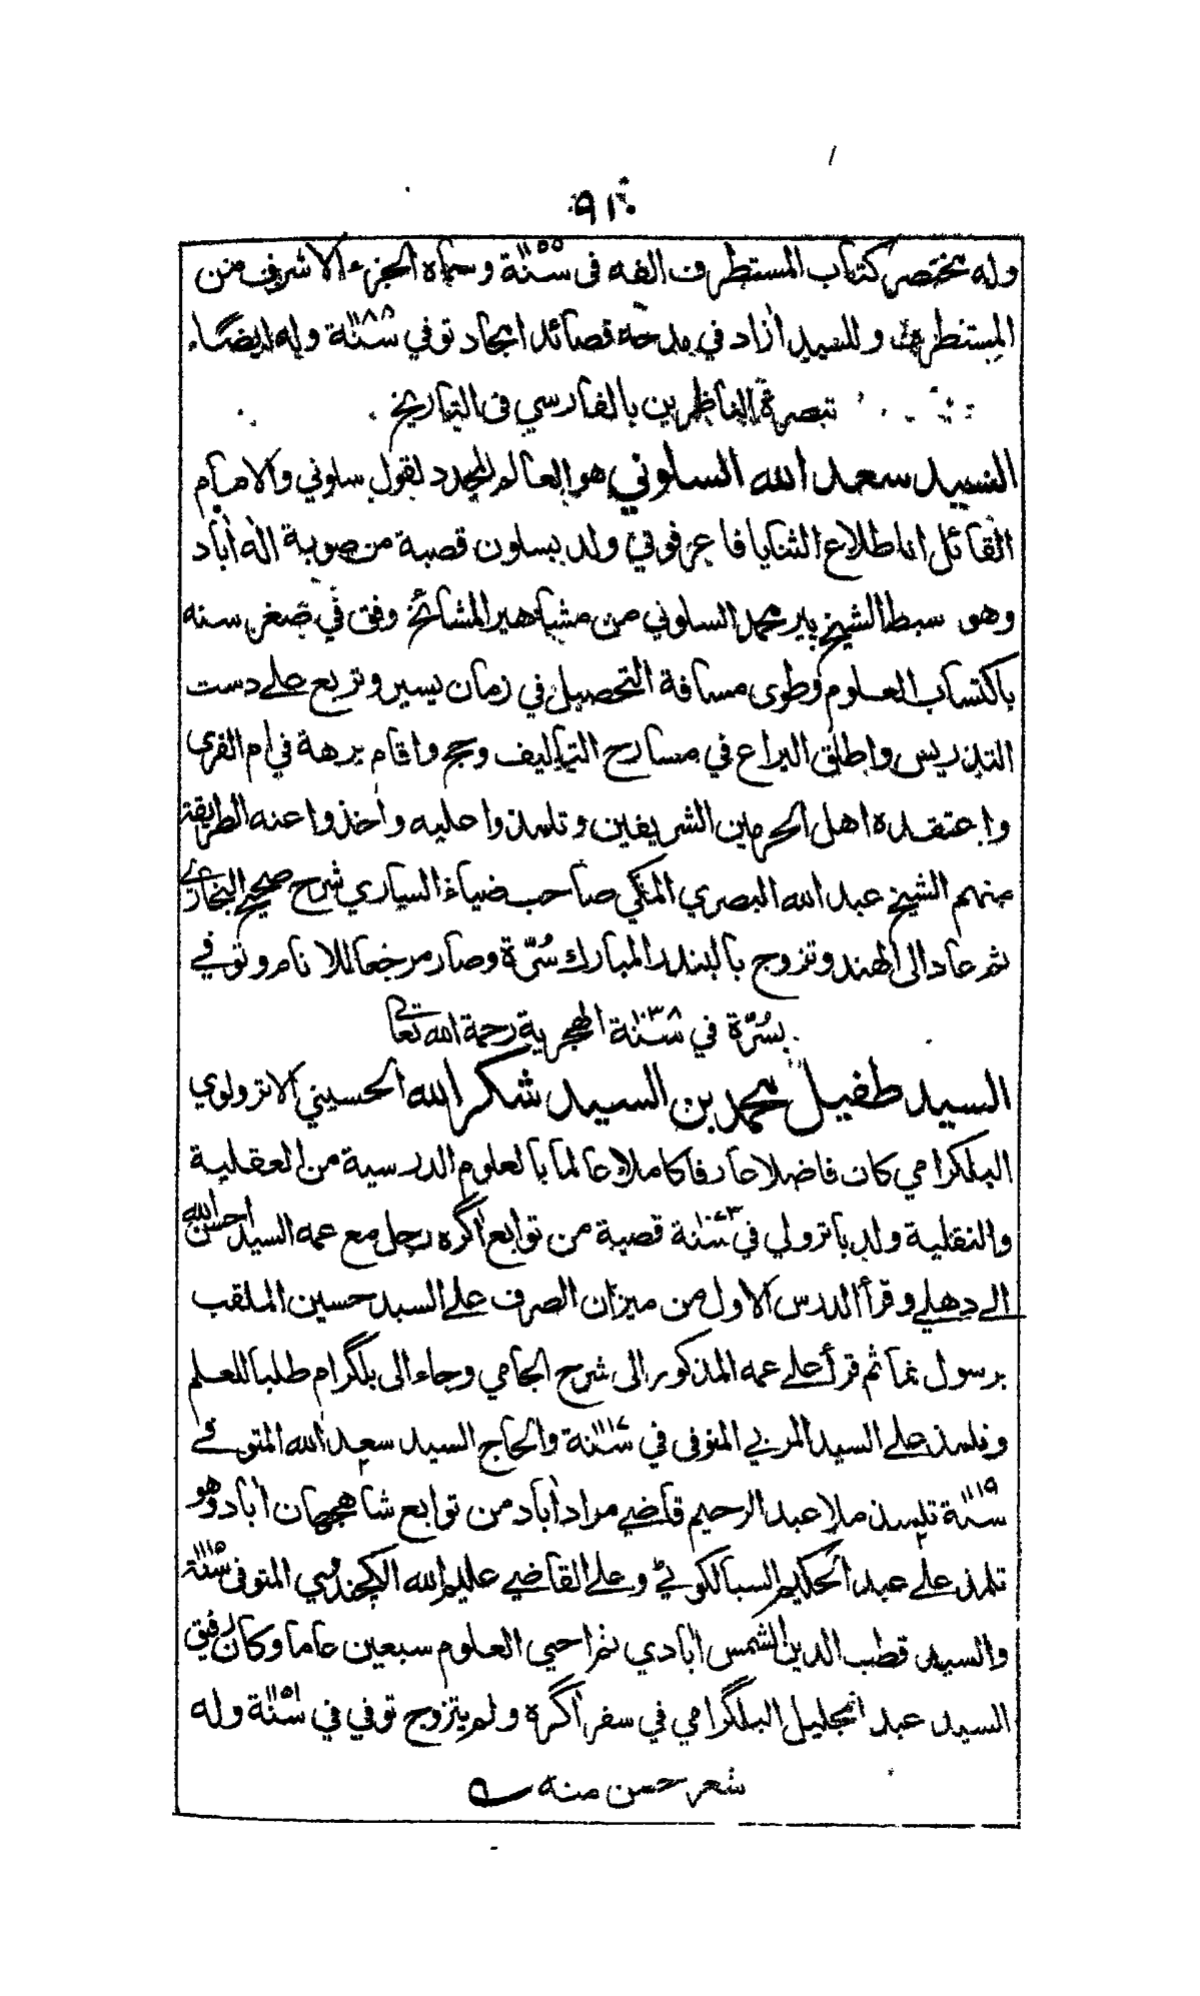 ٩١٠
وله مختصر كتاب المستطرف الفه فى سنة ١١٥٥ وسماه الجزء الاشرف من
المستطرف وللسيد أزاد في مدحه قصائد اجاد توفي سنة ١١٨٨ وله ايضا
تبصرة الناظرين بالفارسي فى التاريخ
السيد سعد الله السلوني هو العالم المجدد لقول سلوني والامام
القائل انا طلاع الثنايا فاعرفوني ولد بسلون قصبة من صوبة اله أباد
وهو سبط الشيخ پير محمد السلوني من مشاهير المشائخ وفق في صغر سنه
باكتساب العلوم وطوى مسافة التحصيل في زمان يسير وتربع على دست
التدريس واطلق اليراع في مسارح التاليف وحج واقام برهة في ام القرى
واعتقده اهل الحرمين الشريفين وتلمذوا عليه واخذوا عنه الطريقة
منهم الشيخ عبد الله البصري المكي صاحب ضياء الساري شرح صحيح البخاري
ثم عاد الى الهند وتزوج بالبندر المبارك سُرّة وصار مرجعا للانام وتوفي
بسُرّة في سنة ١١٣٨ الهجرية رحمة الله تعالى
السيد طفيل محمد بن السيد شكر الله الحسيني الاترولوي
البلكرامي كان فاضلا عارفا كاملا عالما بالعلوم الدرسية من العقلية
والنقلية ولد باترولي في سنة ١٠٧٣ قصبة من توابع أگره رحل مع عمه السيد احسن الله
الى دهلي وقرأ الدرس الاول من ميزان الصرف على السيد حسين الملقب
برسول نما ثم قرأ على عمه المذكور الى شرح الجامي وجاء الى بلگرام طلبا للعلم
وتلمذ على السيد المربي المتوفى في سنة ١١١٧ والحاج السيد سعد الله المتوفى
سنة ١١١٩ تلميذ ملا عبد الرحيم قاضي مراد أباد من توابع شاهجهان أباد وهو
تلمذ على عبد الحكيم السيالكوٹي وعلى القاضي عليم الله الكچندوي المتوفى سنة ١١١٥
والسيد قطب الدين الشمس أبادي ثم احيى العلوم سبعين عاما وكان رفيق
السيد عبد الجليل البلگرامي في سفر أگرة ولم يتزوج توفي في سنة ١١٥١ وله
شعر حسن منه